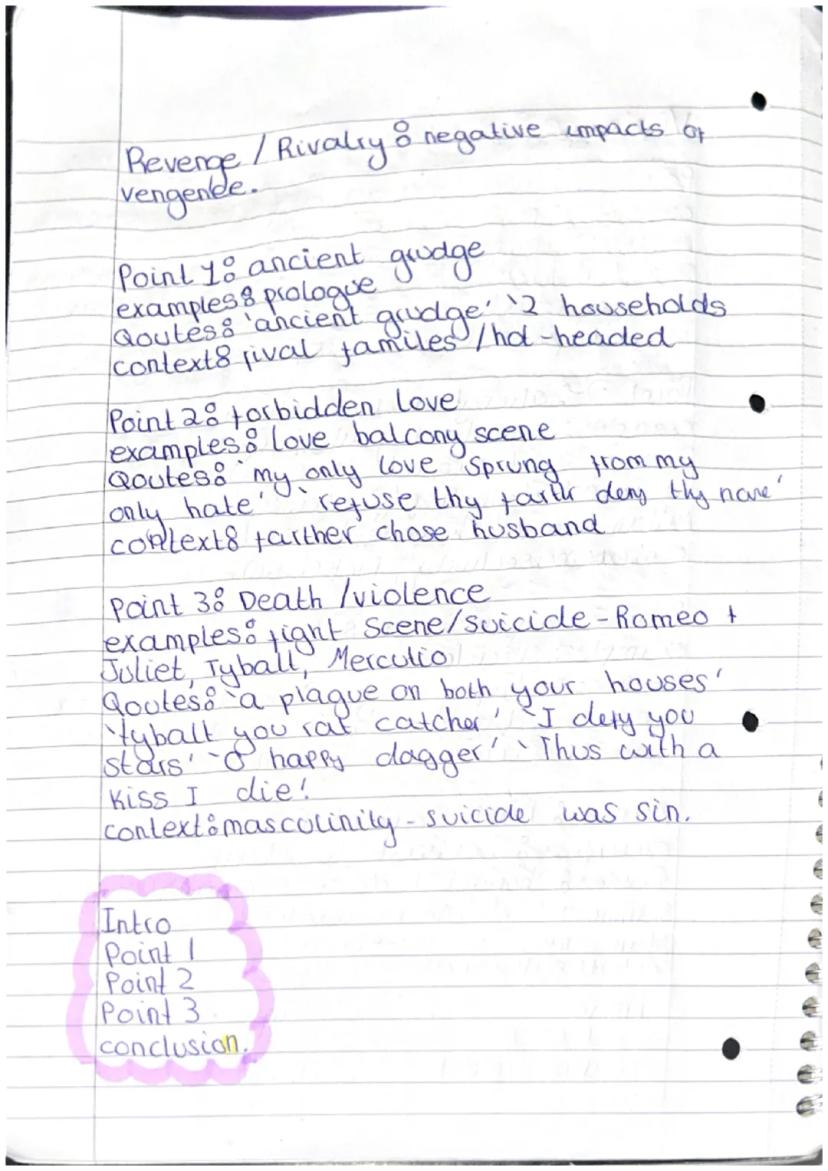 Revenge / Rivalry: negative impacts of
vengende.
Point 1: ancient grudge
examples: prologue
Qoutes: 'ancient grudge' '2 households
context: rival familes /hot-headed
Point 2: forbidden love
examples: love balcony scene
Qoutes: 'my only love sprung from my
only hate' 'refuse thy farthr deny thy name'
context: farther chose husband
Point 3: Death /violence
examples: fight scene/suicide - Romeo +
Juliet, Tyball, Mercutio
Qoutes: 'a plague on both your houses'
'tybalt you rat catcher' 'I defy you
stars' 'O happy dagger' 'Thus with a
kiss I die!
context: masculinity - suicide was sin.
Intro
Point 1
Point 2
Point 3
conclusion.